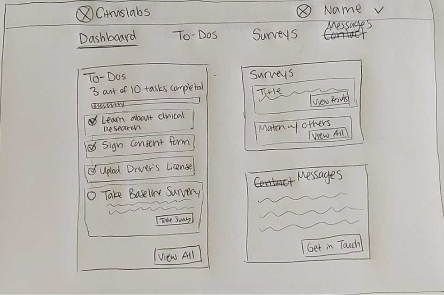 Citruslabs
Name
Dashboard
To-Dos
Surveys
Messages
Contact
To-Dos
3 out of 10 tasks completed
Learn about clinical
research
Sign consent form
Upload Driver's License
Take Baseline Survery
Take Survey
View All
Surveys
Title
View Results
Match w/ others
View All
Contact Messages
Get in Touch